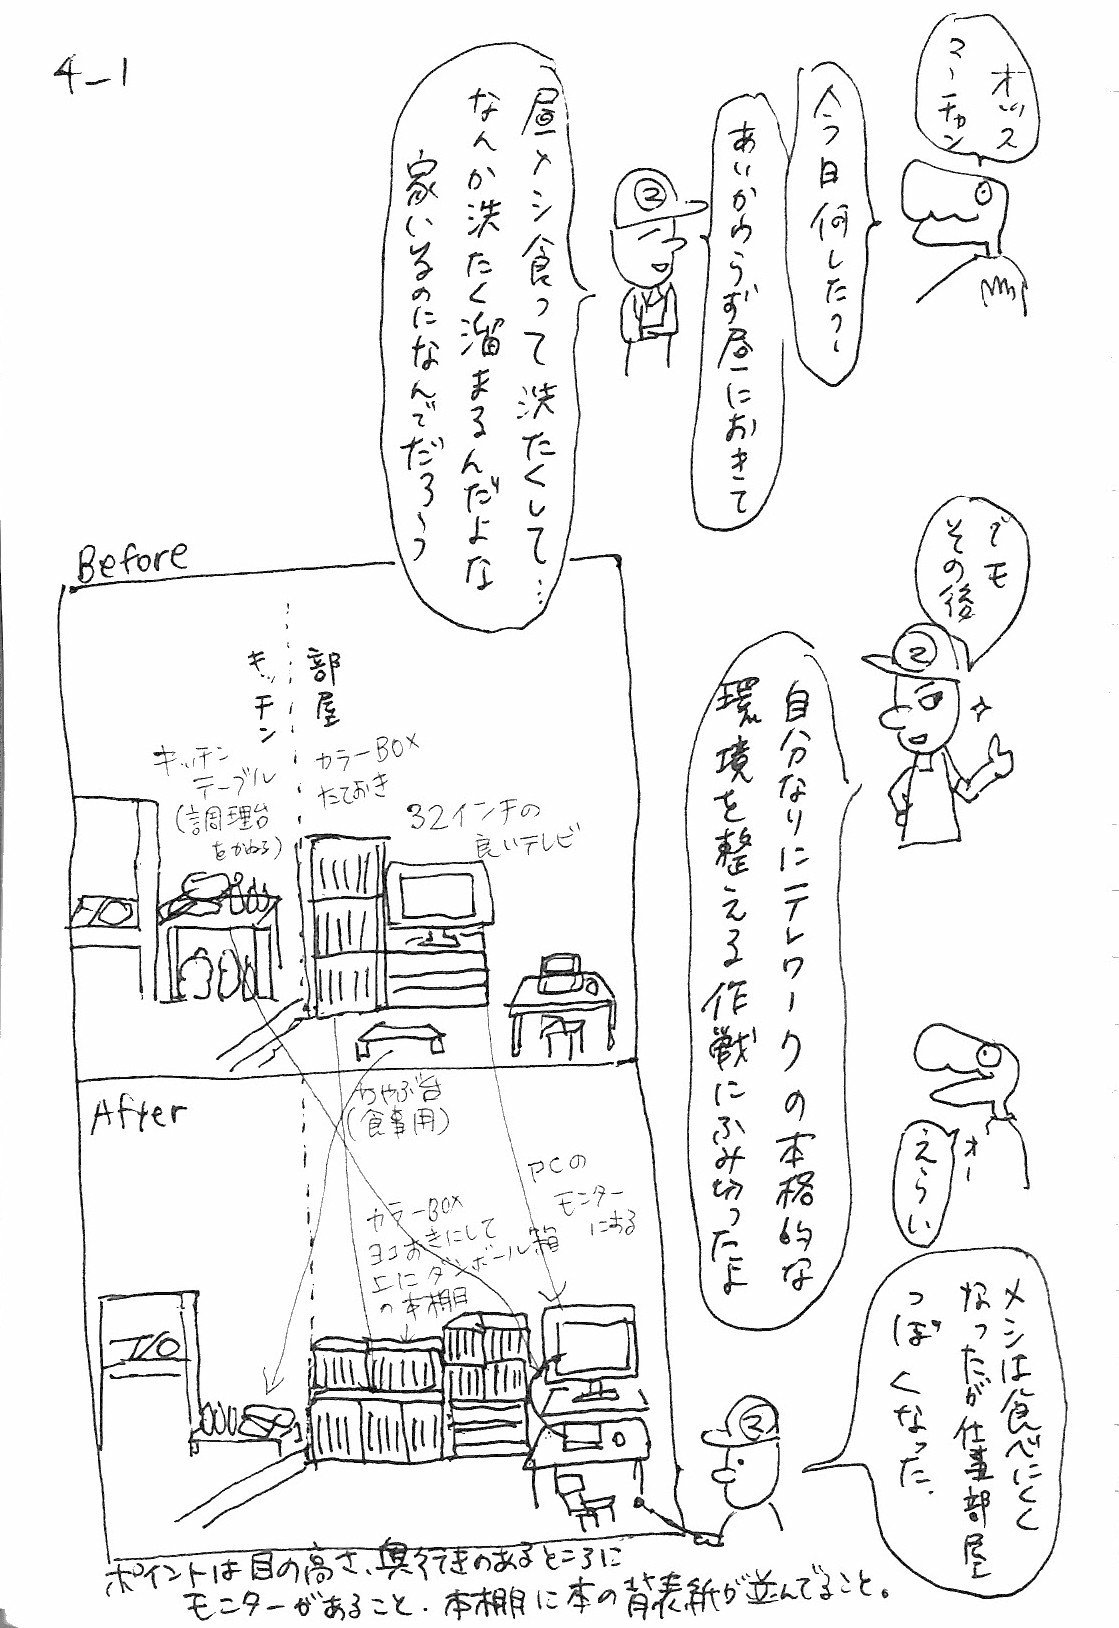 4_1
オッス
マーチャン
今日何した？
あいかわらず昼におきて
昼メシ食って洗たくして…
なんか洗たく溜まるんだよな
家いるのになんでだろう
デモ
その後
自分なりにテレワークの本格的な
環境を整える作戦にふみ切ったよ
オー
えらい
メシは食べにくく
なったが仕事部屋
っぽくなった.
Before
部屋
キッチン
キッチン
テーブル
(調理台
をかねる)
カラーBOX
たておき
32インチの
良いテレビ
ちゃぶ台
(食事用)
After
カラーBOX
ヨコおきにして
上にダンボール箱
の本棚
PCの
モニター
にある
ポイントは目の高さ、奥行きのあるところに
モニターがあること.本棚に本の背表紙が並んでること。